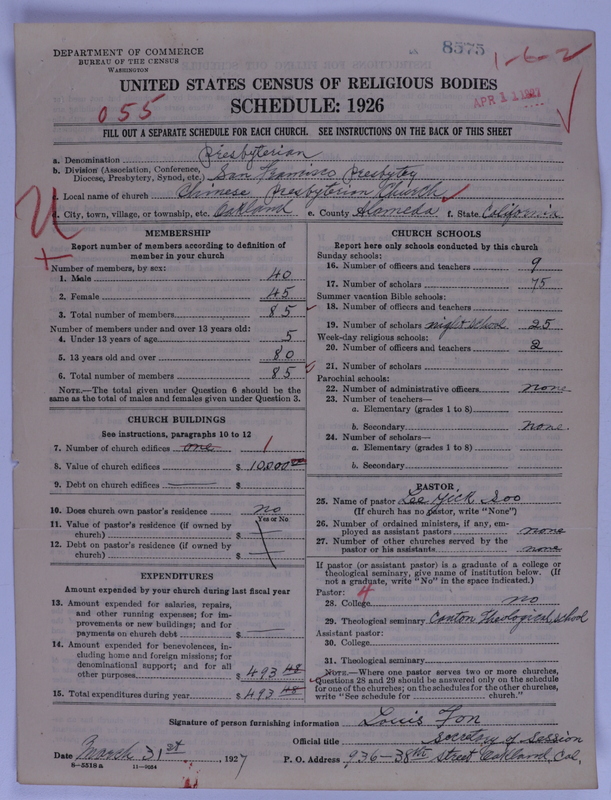 DEPARTMENT OF COMMERCE
BUREAU OF THE CENSUS
WASHINGTON
8575
1-6-2
UNITED STATES CENSUS OF RELIGIOUS BODIES
SCHEDULE: 1926
055
APR 11 1927
FILL OUT A SEPARATE SCHEDULE FOR EACH CHURCH. SEE INSTRUCTIONS ON THE BACK OF THIS SHEET
a. Denomination Presbyterian
b. Division (Association, Conference, Diocese, Presbytery, Synod, etc.) San Francisco Presbytey
c. Local name of church Chinese Presbyterian Church
d. City, town, village, or township, etc. Oakland e. County Alameda f. State California
MEMBERSHIP
Report number of members according to definition of
member in your church
Number of members, by sex:
1. Male 40
2. Female 45
3. Total number of members 85
Number of members under and over 13 years old:
4. Under 13 years of age 5
5. 13 years old and over 80
6. Total number of members 85
NOTE.—The total given under Question 6 should be
same as the total of males and females given under Question 3.
CHURCH BUILDINGS
See instructions, paragraphs 10 to 12
7. Number of church edifices one 1
8. Value of church edifices $ 10000
9. Debt on church edifices $
10. Does church own pastor's residence no
Yes or No
11. Value of pastor's residence (if owned by
church) $
12. Debt on pastor's residence (if owned by
church) $
EXPENDITURES
Amount expended by your church during last fiscal year
13. Amount expended for salaries, repairs,
and other running expenses; for im-
provements or new buildings; and for
payments on church debt $
14. Amount expended for benevolences, in-
cluding home and foreign missions; for
denominational support; and for all
other purposes $ 493 48
15. Total expenditures during year $ 493 48
CHURCH SCHOOLS
Report here only schools conducted by this church
Sunday schools:
16. Number of officers and teachers 9
17. Number of scholars 75
Summer vacation Bible schools:
18. Number of officers and teachers
19. Number of scholars night school 25
Week-day religious schools:
20. Number of officers and teachers 2
21. Number of scholars
Parochial schools:
22. Number of administrative officers none
23. Number of teachers—
a. Elementary (grades 1 to 8)
b. Secondary none
24. Number of scholars—
a. Elementary (grades 1 to 8)
b. Secondary
PASTOR
25. Name of pastor Lee Yick Soo
(If church has no pastor, write "None")
26. Number of ordained ministers, if any, em-
ployed as assistant pastors none
27. Number of other churches served by the
pastor or his assistants none
If pastor (or assistant pastor) is a graduate of a college or
theological seminary, give name of institution below. (If
not a graduate, write "No" in the space indicated.)
Pastor: 4
28. College no
29. Theological seminary Canton Theological School
Assistant pastor:
30. College
31. Theological seminary
NOTE.—Where one pastor serves two or more churches,
Questions 28 and 29 should be answered only on the schedule
for one of the churches; on the schedules for the other churches,
write "See schedule for church."
Signature of person furnishing information Louis Fon
Official title Secretary of Session
Date March 31st 1927 P. O. Address 936-38th Street Oakland, Cal.
8-5518 a 11-9054